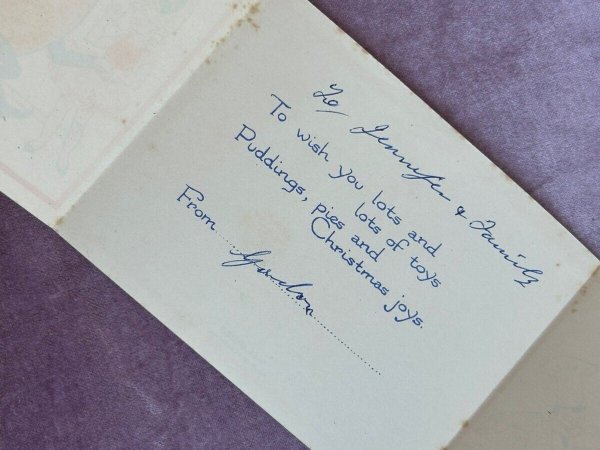 To/ Jennifer & Family
To wish you lots and
lots of toys
Puddings, pies and
Christmas joys.
From Gordon